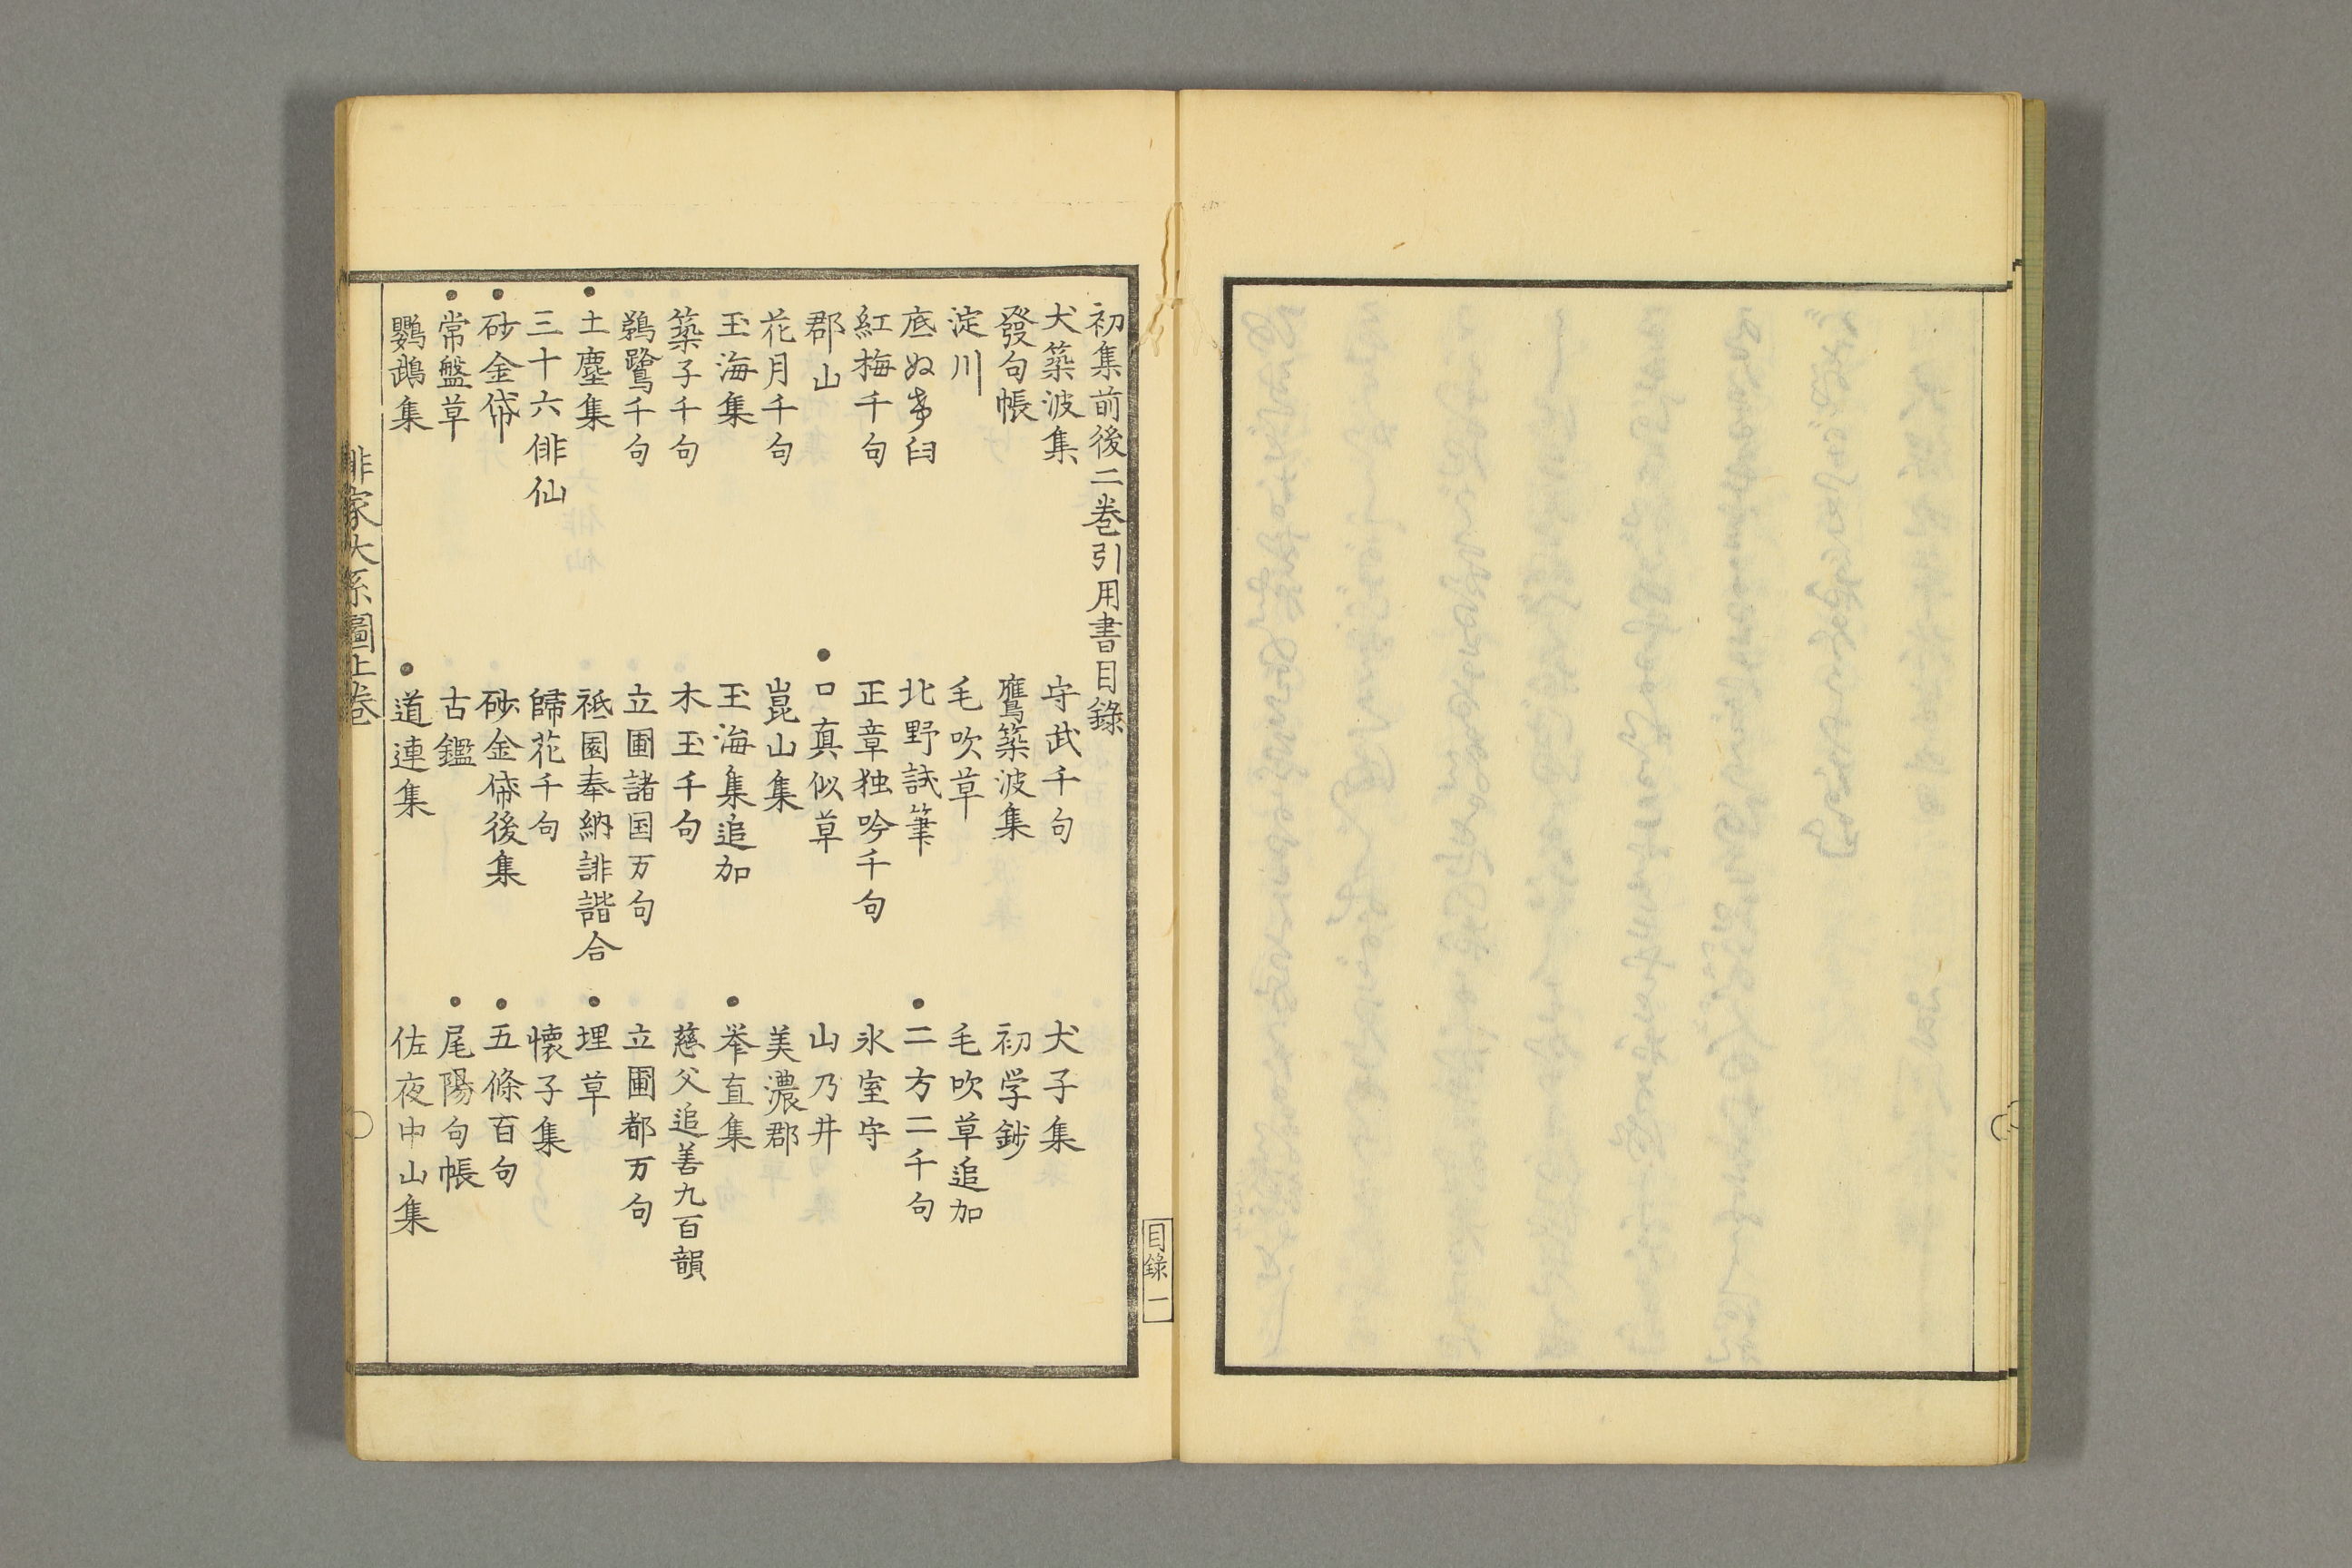 初集前後二巻引用書目錄
犬築波集　守武千句　犬子集
發句帳　鷹築波集　初学鈔
淀川　毛吹草　毛吹草追加
底ぬけ臼　北野試筆　●二方二千句
紅梅千句　正章独吟千句　氷室守
郡山　●口真似草　山乃井
花月千句　崑山集　美濃郡
玉海集　玉海集追加　●峷直集
築子千句　木玉千句　慈父追善九百韻
鵜鷺千句　立圃諸国万句　立圃都万句
●土塵集　祗園奉納誹諧合　●埋草
三十六俳仙　歸花千句　懐子集
●砂金帒　砂金帒後集　●五條百句
●常盤草　古鑑　●尾陽句帳
鸚鵡集　●道連集　佐夜中山集
俳家大系圖上巻
目錄　一